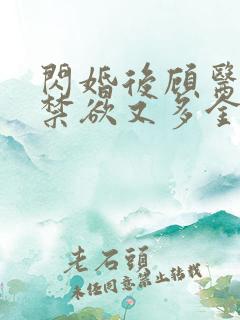 閃婚後顾醫
禁欲又多金
老石頭
未任同意禁止轉載